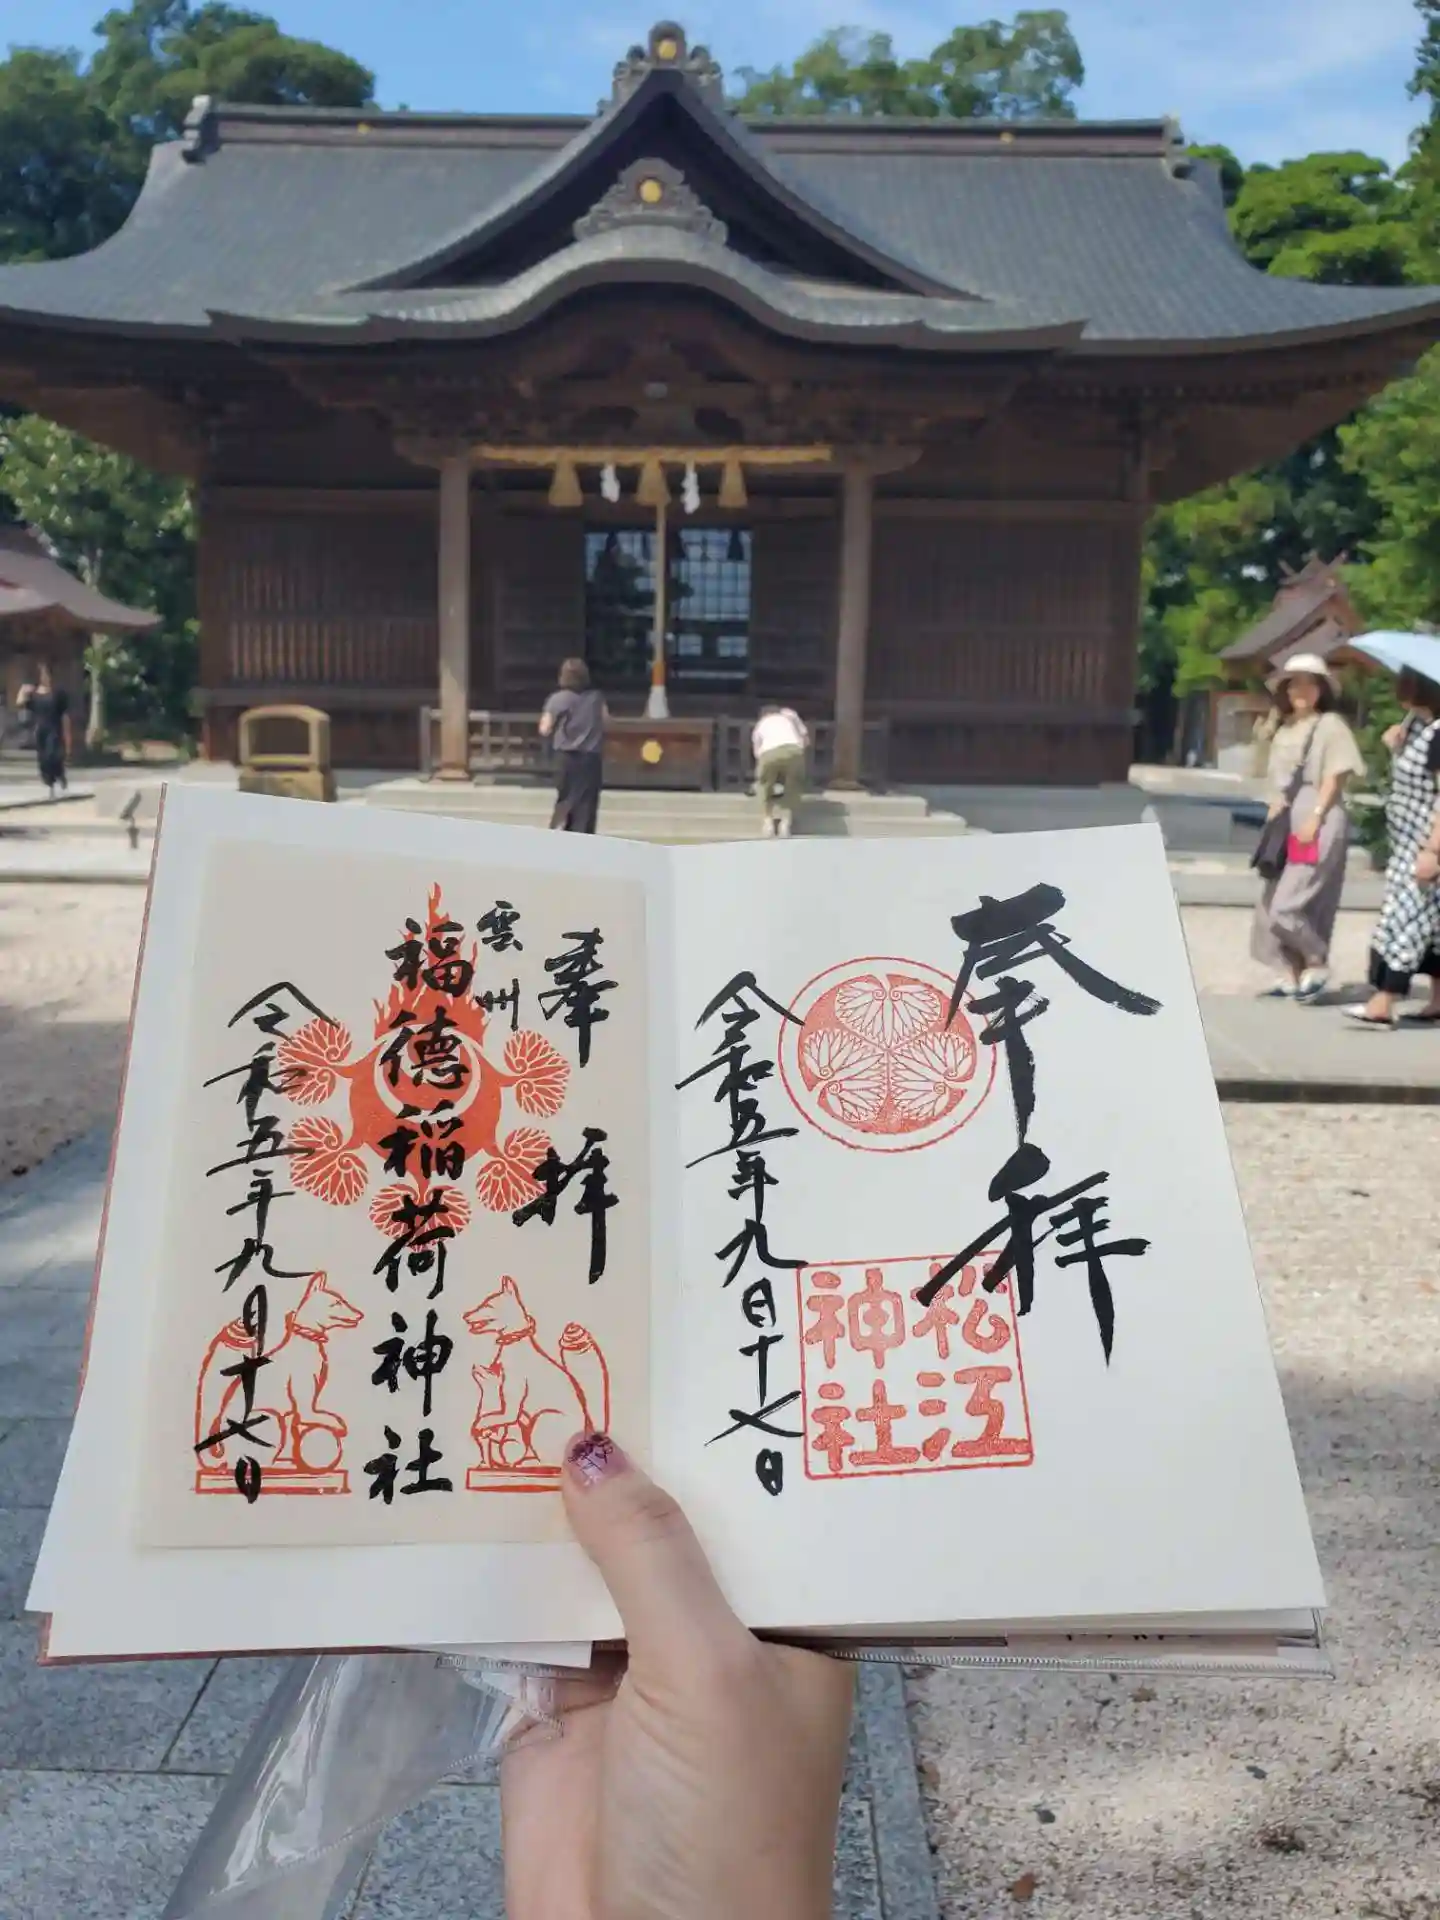 奉拝
松江
神社
令和五年九月十七日
奉拝
雲州
福徳稲荷神社
令和五年九月十七日